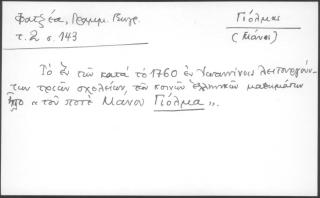 Φατζέα, Γραμμ. Πυγρ. Γιόλμας
τ. 2 σ. 143 (Μάνος)
Τὸ ἓν τῶν κατὰ τὸ 1760 ἐν Ἰωαννίνοις λειτουργούν-
των τριῶν σχολείων, τῶν κοινῶν ἑλληνικῶν μαθημάτων
ἦτο «τοῦ ποτὲ Μάνου Γιόλμα».